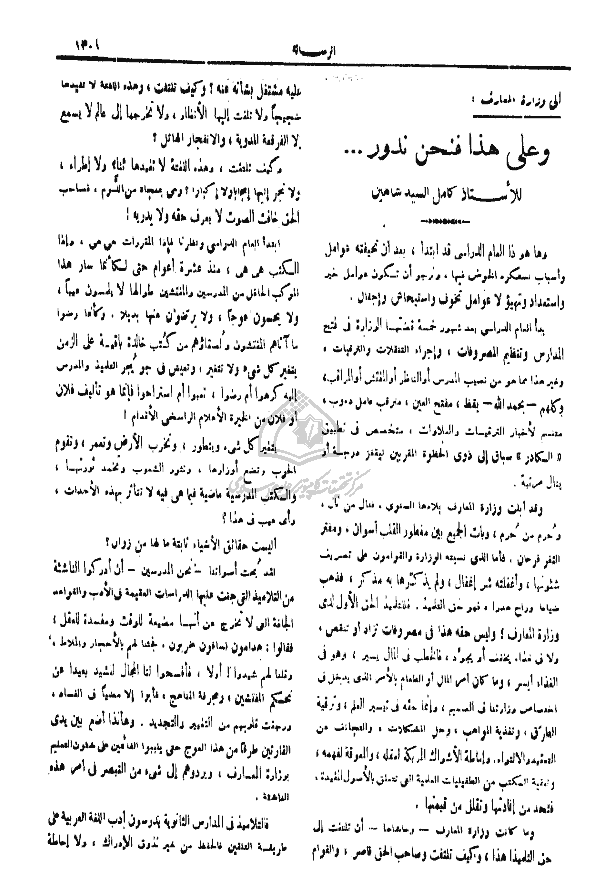 ١٣٠١
الرسالة
إلى وزارة المعارف :
وعلى هذا فنحن ندور ...
للأستاذ كامل السيد شاهين
وها هو ذا العام الدراسي قد ابتدأ ، بعد أن تحيفته عوامل
وأسباب ستكره الخوض فيها . ونرجو أن تكون عوامل خير
واستعداد وتهيؤ لا عوامل تخوف واستيحاش وإجفال .
بدأ العام الدراسي بعد شهور خمسة قضتها الوزارة في فتح
المدارس وتنظيم المصروفات ، وإجراء التنقلات والترقيات ،
وغير هذا مما هو من نصيب المدرس أو الناظر أو المفتش أو المراقب ،
وكلهم – بحمد الله – يقظ ، مفتح العين ، مترقب عامل دءوب ،
متسم لأخبار الترقيات والعلاوات ، متخصص في تطبيق
« الكادر » سباق إلى ذوي الحظوة المقربين ليقفز درجة أو
ينال مرتبة .
وقد أبلت وزارة المعارف بلاءها السنوي . فنال من نال ،
وحُرم من حُرم ، وبات الجميع بين مفطور القلب أسوان ، ومفتر
الثغر فرحان . فأما الذي نسيته الوزارة والقوامون على تصريف
شئونها ، وأغفلته شر إغفال ، ولم يذكرها به مذكر ، فذهب
ضياعا وراح هدرا ، فهو حق التلميذ . فللتلميذ الحق الأول لدى
وزارة المعارف ! وليس حقه هذا في مصروفات تزاد أو تنقص ،
ولا في غذاء يخفف أو يجوّد ، فالخطب في المال يسير ، وهو في
الغذاء أيسر ، وما كان أمر المال أو الطعام بالأمر الذي يدخل في
اختصاص وزارتنا في الصميم ، وإنما حقه في تيسير العلم ، وترقية
المدارك ، وتغذية المواهب ، وحل المشكلات ، والتجانف عن
التعقيد والالتواء . وإماطة الأشواك المربكة لعقله ، والمعوقة لفهمه ،
وتنقية الكتب من الطفيليات العلمية التي تتعلق بالأصول المفيدة ،
فتحد من إفادتها وتقلل من قيمتها .
وما كانت وزارة المعارف – وحاشاها – أن تلتفت إلى
حق التلميذ هذا ، وكيف تلتفت وصاحب الحق قاصر ، والقوام
عليه مشتغل بشأنه عنه ؟ وكيف تلتفت ، وهذه اللفتة لا تفيدها
ضجيجاً ولا تلفت إليها الأنظار ، ولا تخرجها إلى عالم لا يسمع
إلا الفرقعة المدوية ، والانفجار الهائل ؟
وكيف تلتفت ، وهذه اللفتة لا تفيدها ثناء ولا إطراء ،
ولا تجر إليها إعجابا ولا إكبارا ؟ وهي بمنجاة من اللوم ، فصاحب
الحق خافت الصوت لا يعرف حقه ولا يدريه !
ابتدأ العام الدراسي ونظرنا فإذا المقررات هي هي ، وإذا
الكتب هي هي ، منذ عشرة أعوام حتى لكأنما سار هذا
الموكب الحافل من المدرسين والمفتشين طوالها لا يلمسون عيباً ،
ولا يحسون عوجاً ، ولا يرضون عنها بديلا . وكأنما رضوا
ما آتاهم المفتشون وأستاؤهم من كُتب خالدة باقية على الزمن
يتغير كل شيء ولا تتغير ، وتعيش في جو يُجر التلميذ والمدرس
إليه كرهوا أم رضوا ، تعبوا أم استراحوا فإنما هو تأليف فلان
أو فلان من الخيرة الأعلام الراسخي الأقدام !
يتغير كل شيء ويتطور ، وتخرب الأرض وتعمر ، وتقوم
الحرب وتضع أوزارها ، وتثور الشعوب وتخمد ثورتها ،
والكتب المدرسية ماضية فيما هي فيه لا تتأثر بهذه الأحداث ،
وأي عيب في هذا ؟
أليست حقائق الأشياء ثابتة ما لها من زوال ؟
لقد بُحت أصواتنا – نحن المدرسين – أن أدركوا الناشئة
من التلاميذ التي جفت عنها الدراسات العقيمة في الأدب والقواعد
الجافة التي لا تخرج عن أنها مضيعة للوقت ومفسدة للعقل ؛
فقالوا : هدامون تسافون مخربون . فجئنا لهم بالأحجار والملاط ،
وقلنا لهم شيدوا أولا ، فأفسحوا لنا المجال لنشيد بعيدا عن
تحكم المفتشين ، ومجرفة المناهج ، فأبوا إلا مضيًّا في الفساد ،
ورجفت قلوبهم من التغيير والتجديد . وهأنذا أضع بين يدي
القارئين طرفًا من هذا العوج حتى يتنبهوا القائمين على شئون التعليم
بوزارة المعارف ، ويردوهم إلى شيء من التبصر في أمر هذه
الناشئة .
فالتلاميذ في المدارس الثانوية يدرسون أدب اللغة العربية على
طريقة التلقين فالحفظ من غير تذوق الإدراك ، ولا إحاطة